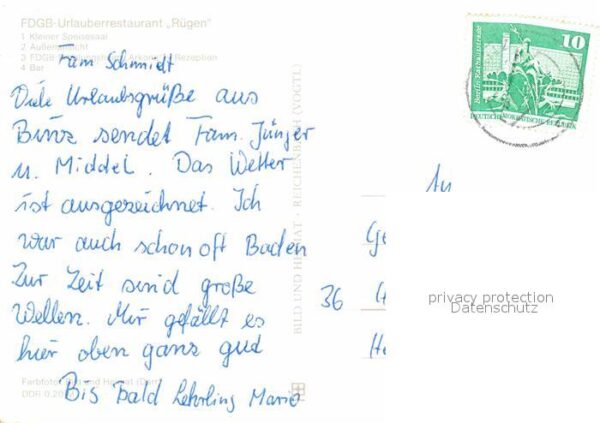 FDGB-Urlauberrestaurant „Rügen“
1 Kleiner Speisesaal
2 Außenansicht
3 FDGB Rezeption
4 Bar
Fam Schmidt
Viele Urlaubsgrüße aus
Binz sendet Fam. Jünger
u. Middel. Das Wetter
ist ausgezeichnet. Ich
war auch schon oft Baden
Zur Zeit sind große
Wellen. Mir gefällt es
hier oben ganz gud
Bis Bald Lehrling Mario
Farbfoto: Bild und Heimat
DDR 0.20
BILD UND HEIMAT · REICHENBACH (VOGTL)
10
Berlin, Rathausstraße
DEUTSCHE DEMOKRATISCHE REPUBLIK
An
Ge
36
He
privacy protection
Datenschutz